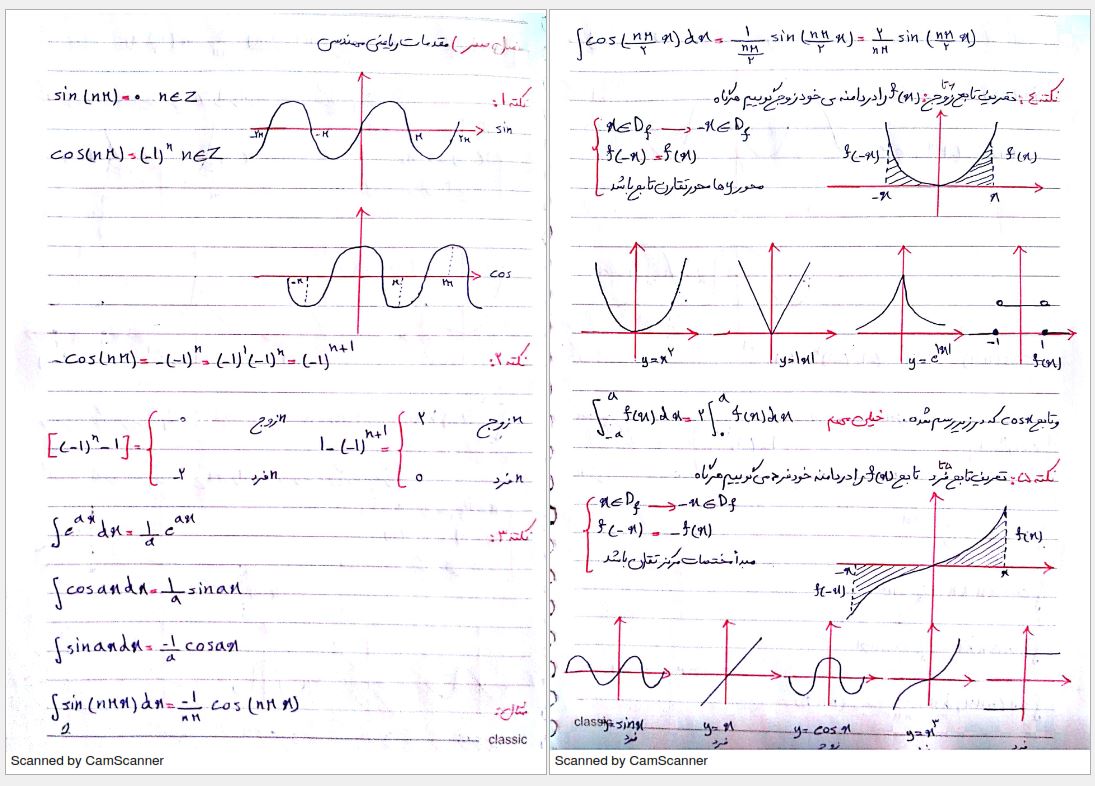 مقدمات ریاضی مهندسی
نکته ۱:
sin (nπ) = ۰ n∈Z
cos(nπ) = (-1)^n n∈Z
-۲π -π π ۲π sin
-π π ۲π cos
نکته ۲:
-cos(nπ) = -(-1)^n = (-1)^1 (-1)^n = (-1)^{n+1}
[(-1)^n - 1] = { ۰ n زوج
-۲ n فرد
1 - (-1)^{n+1} = { ۲ n زوج
۰ n فرد
نکته ۳:
∫ e^{ax} dx = 1/a e^{ax}
∫ cos ax dx = 1/a sin ax
∫ sin ax dx = -1/a cos ax
مثال:
∫ sin (nπx) dx = -1/nπ cos (nπx)
classic
Scanned by CamScanner
∫ cos (nπ/۲ x) dx = 1/(nπ/۲) sin (nπ/۲ x) = ۲/nπ sin (nπ/۲ x)
نکته ٤: تعریف تابع زوج: تابع f(x) را در دامنه ی خود زوج گوییم هرگاه
x∈D_f → -x∈D_f
f(-x) = f(x)
محور y ها محور تقارن تابع باشد
f(-x) f(x)
-x x
y=x^۲ y=|x| y=e^{|x|} f(x)
-1 1
∫_{-a}^{a} f(x) dx = ۲∫_{۰}^{a} f(x) dx خیلی مهم
و تابع cosx که در زیر رسم شده.
نکته ۵: تعریف تابع فرد تابع f(x) را در دامنه خود فرد می گوییم هرگاه
x∈D_f → -x∈D_f
f(-x) = -f(x)
مبدأ مختصات مرکز تقارن باشد
f(x)
-x x
f(-x)
classic
y=sinx y=x y=cosx y=x^۳
فرد فرد زوج فرد
Scanned by CamScanner